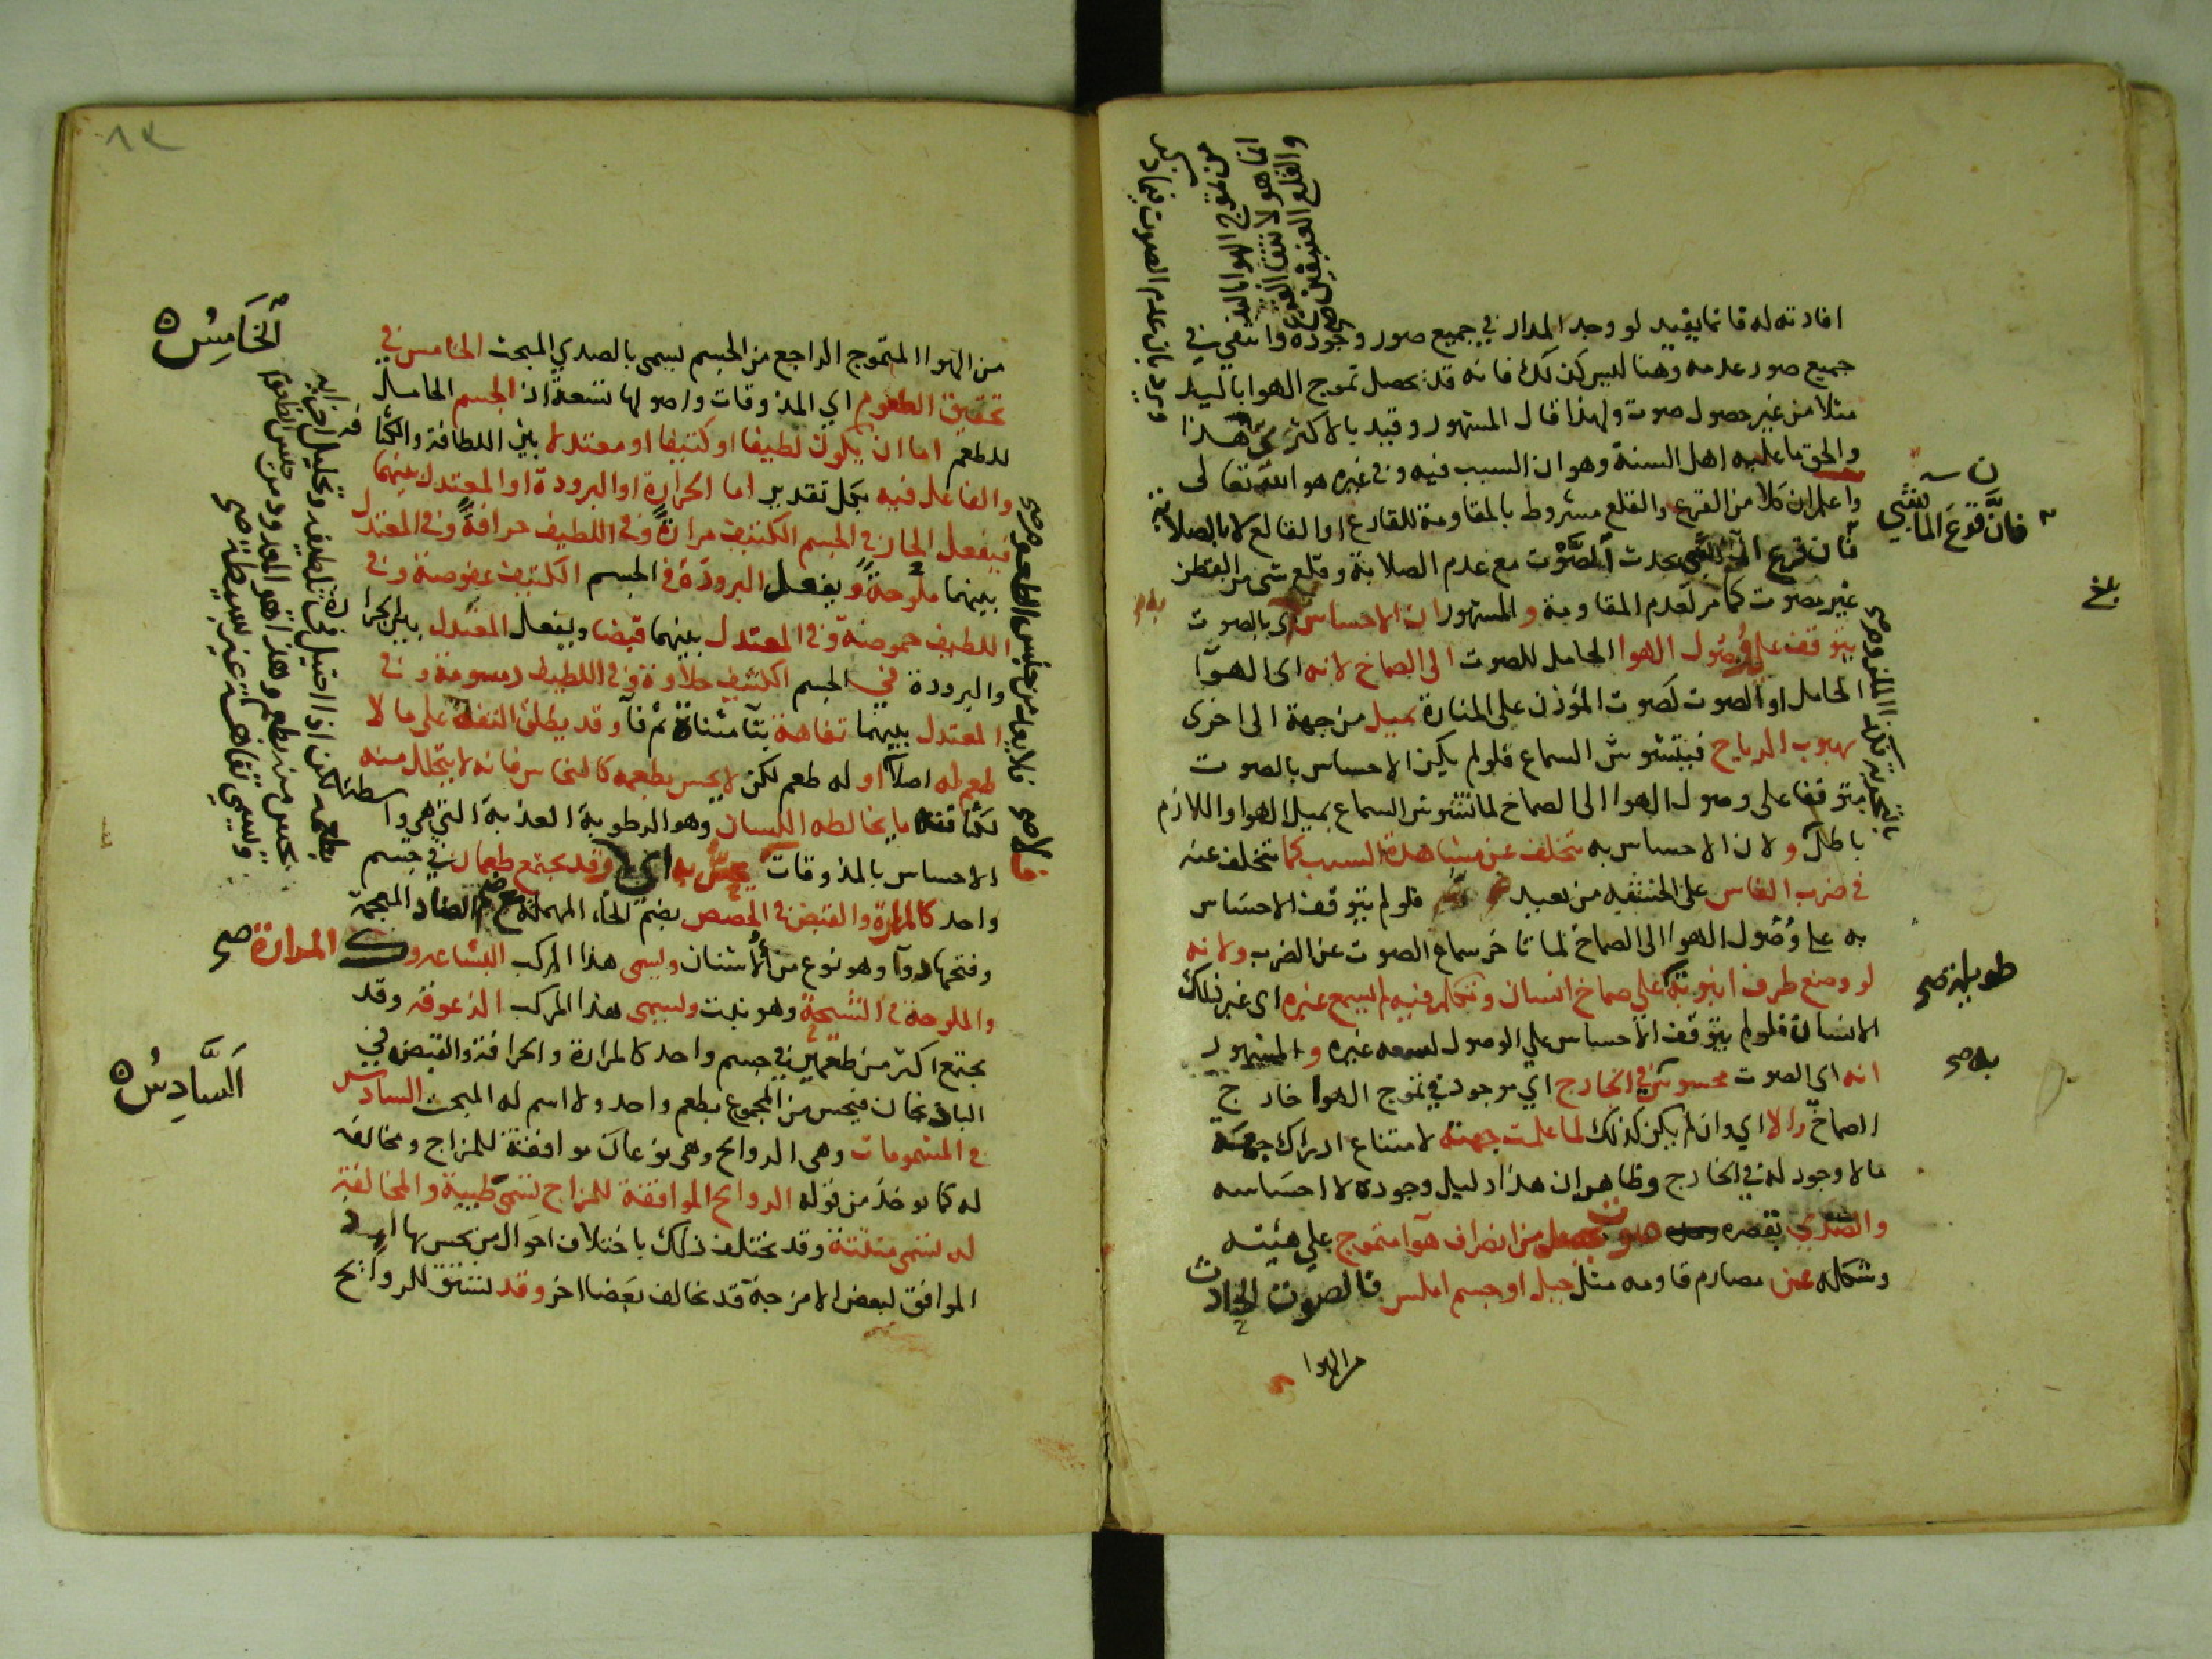 افادته له فانما يفيد لو وجد المدار في جميع صور وجوده وانتفي في
جميع صور عدمه وهنا ليس كذلك فانه قد يحصل تموج الهوا باليد
مثلا من غير حصول صوت ولهذا قال المشهور وقيد بالاكثر هذا
والحق ما عليه اهل السنة وهو ان السبب فيه وفي غيره هو الله تعالى
واعلم ان كلا من القرع والقلع مشروط بالمقاومة للقارع او القالع لا بالصلابة
فان قرع يحدث الصوت مع عدم الصلابة وقلع شي من القطن
غير مصوت كما مر لعدم المقاومة والمشهور ان الاحساس اي بالصوت
يتوقف علي وصول الهوا الحامل للصوت الى الصماخ لانه اى الهوآ
الحامل او الصوت كصوت المؤذن على المنارة يميل من جهة الى اخرى
بهبوب الرياح فيتشوش السماع فلو لم يكن الاحساس بالصوت
متوقفا على وصول الهوا الى الصماخ لما تشوش السماع بميل الهوا واللازم
باطل ولان الاحساس به تخلف عن مشاهدة السبب كما تتخلف عنه
في ضرب الفاس على الخشبة من بعيد فلو لم يتوقف الاحساس
به على وُصُول الهوا الى الصماخ لما تاخر سماع الصوت عن الضرب ولانه
لو وضع طرف انبوبة على صماخ انسان وتكلم فيه لم يسمع غيره اى غير ذلك
الانسان فلو لم يتوقف الاحساس على الوصول لسمعه غيره والمشهور
انه اى الصوت محسوس في الخارج اي موجود في تموج الهوا خارج
الصماخ والا اي وان لم يكن كذلك لما علمت جهته لامتناع ادراك جهة
ما لا وجود له في الخارج وظاهر ان هذا دليل وجوده لا احساسه
والصَّدي بقصره صوت يحصل من انصراف هوآ متموج علي هيئته
وشكله عن مصادم قاومه مثل جبل او جسم املس فالصوت الحادث
من الهوا
فانَّ قرعَ الما
بلغ
طويلة صح
به صح
من تموج الهوا باليد
انما هو لانتفا القرع
والقلع العنيفين صح
من الهوا المتموج الراجع من الجسم يسمى بالصدي المبحث الخامس في
تحقيق الطعوم اي المذوقات واصولها تسعة اذ الجسم الحامل
للطعم اما ان يكون لطيفا او كثيفا او معتدلا بين اللطافة والكثافة
والفاعل فيه بكل تقدير اما الحرارة او البرودة او المعتدل بينهما
فيفعل الحار في الجسم الكثيف مرارةً وفي اللطيف حرافةً وفي المعتدل
بينهما ملوحةً ويفعل البرودة في الجسم الكثيف عفوصة وفي
اللطيف حموضة وفي المعتدل بينهما قبضا ويفعل المعتدل بين الحرا
والبرودة في الجسم الكثيف حلاوة وفي اللطيف دسومة وفي
المعتدل بينهما تفاهة بتآ مثناة ثم فآ وقد يطلق التفه على ما لا
طعم له اصلا او له طعم لكن لا يحس بطعمه كالنحاس فانه لا يتحلل منه
لكثافته ما يخالطه اللسان وهو الرطوبة العذبة التي هي واسطة
الاحساس بالمذوقات وقد يجتمع طعمان في جسم
واحد كالمرارة والقبض في الحضض بضم الحاء المهملة مع ضم الضاد المعجمة
وفتحها دوآ وهو نوع من الأشنان ويسمى هذا المركب البشاعة و المرارة صح
والملوحة في الشيحة وهو نبت ويسمى هذا المركب الزعوقة وقد
يجتمع اكثر من طعمين في جسم واحد كالمرارة والحرافة والقبض في
الباذنجان فيحس من المجموع بطعم واحد ولا اسم له المبحث السادس
في المشمومات وهى الروايح وهي نوعان موافقة للمزاج ومخالفة
له كما يوخذ من قوله الروايح الموافقة للمزاج تسمى طيبة والمخالفة
له تسمى منتنة وقد يختلف ذلك باختلاف احوال من يحس بها اذ
الموافق لبعض الامزجة قد يخالف بعضا اخر وقد تشتق للروايح
الخَامِسُ ٥
السَّادِسُ ٥
فلا يعد من جنس الطعم صح
ما لا صح
بطعمه لكن اذا احتيل في تلطيفه وتحليل اجزايه
يحس منه بطعم وهذا هو المعدود من جنس الطعوم
وتسمي تفاهته غير بسيطة صح